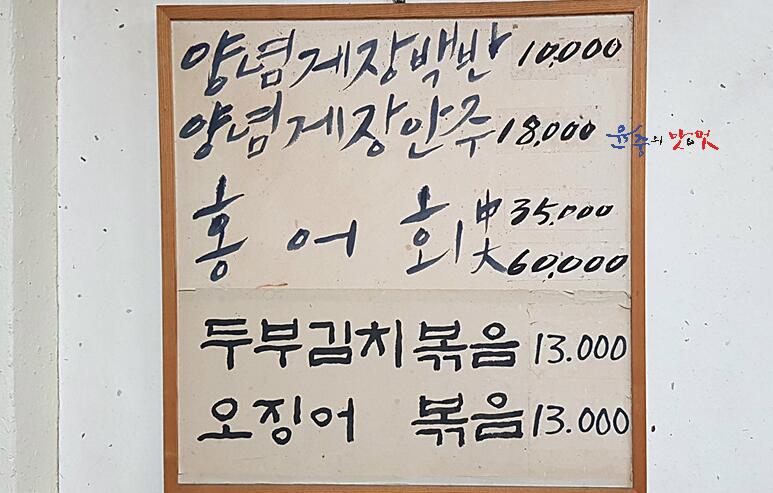 양념게장백반 10,000
양념게장안주 18,000
홍어회 中 35,000
大 60,000
두부김치볶음 13.000
오징어 볶음 13.000
윤중의 맛멋